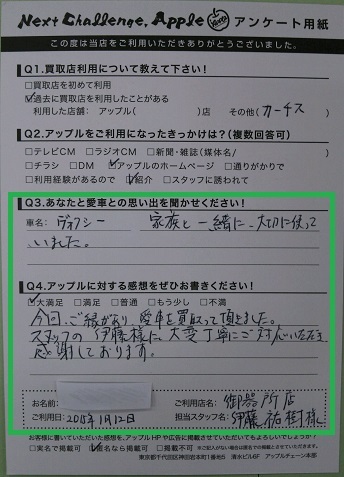 Next Challenge, Apple アンケート用紙
この度は当店をご利用いただきありがとうございました。
Q1.買取店利用について教えて下さい!
□買取店を初めて利用
☑過去に買取店を利用したことがある
利用した店舗:アップル( )店 その他(カーチス)
Q2.アップルをご利用になったきっかけは?(複数回答可)
□テレビCM □ラジオCM □新聞・雑誌(媒体名/ )
□チラシ □DM ☑アップルのホームページ □通りがかりで
□利用経験があるので ☑紹介 □スタッフに誘われて
Q3.あなたと愛車との思い出を聞かせください!
車名: 家族と一緒に、大切に使って
いました。
Q4.アップルに対する感想をぜひお書きください!
☑大満足 □満足 □普通 □もう少し □不満
今回、ご縁があり、愛車を買取って頂きました。
スタッフの伊藤様に、大変丁寧にご対応いただき
感謝しております。
お名前: ご利用店名:御器所店
ご利用日:2015年1月12日 担当スタッフ名:伊藤祐樹様
お客様に書いていただいた感想を、アップルHPや広告に掲載させていただいてもよろしいでしょうか?
□実名で掲載可 ☑匿名なら掲載可 □掲載不可 ※ご記入がない場合は匿名での掲載とさせていただきます。
東京都千代田区神田岩本町1番地5 清水ビル6F アップルチェーン本部